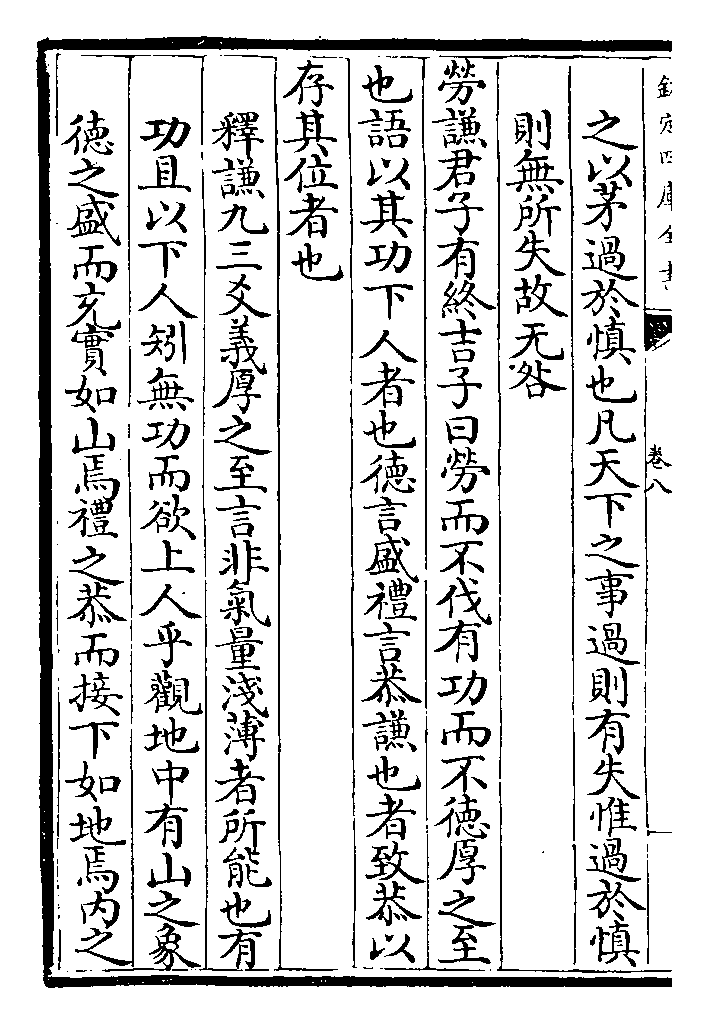 欽定四庫全書
卷八
之以茅過於慎也凡天下之事過則有失惟過於慎
則無所失故无咎
勞謙君子有終吉子曰勞而不伐有功而不徳厚之至
也語以其功下人者也徳言盛禮言恭謙也者致恭以
存其位者也
釋謙九三爻義厚之至言非氣量淺薄者所能也有
功且以下人矧無功而欲上人乎觀地中有山之象
徳之盛而充實如山焉禮之恭而接下如地焉内之